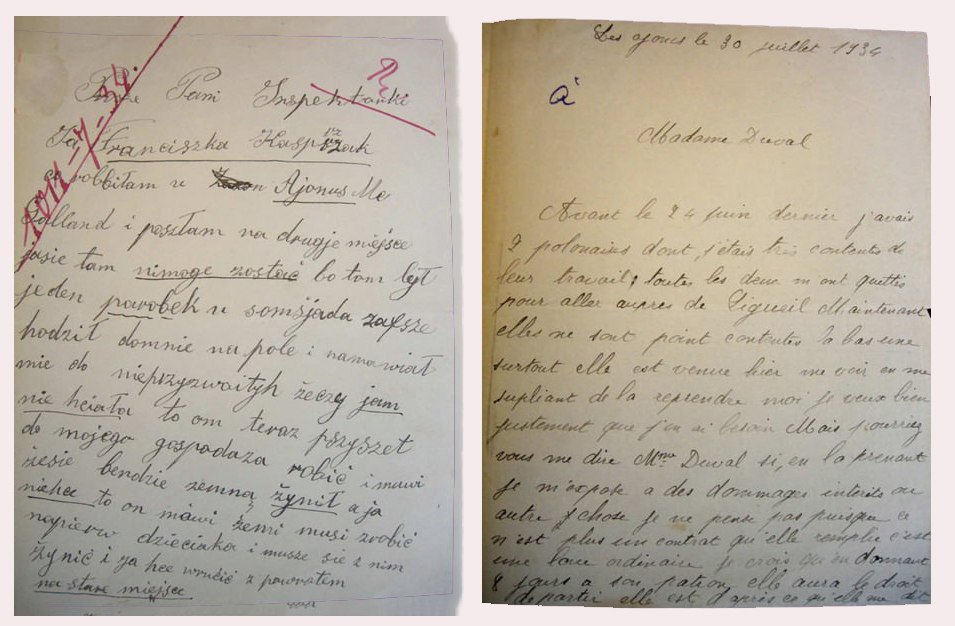 Pani Inspektorki
Ja Franciszka Kasprzak
robbiłam u Ajonus Me
Holland i poszłam na drugje miejsce
jasie tam nimoge zostac bo tam był
jeden parobek u somsjada zafsze
hodził domnie na pole i namawiał
mie do nieprzyzwaityh żeczy jam
nie hciała to om teraz pszyszet
do mojego gospodaza robić i muwi
żesie bendzie zemną żynił a ja
niehce to on mawi żemi musi zrobić
napierw dzieciaka i musze sie z nim
żynić i ja hce wrucić z powratem
na stare miejsce
Les ajoncs le 30 juillet 1934
À
Madame Duval
Avant le 24 juin dernier j'avais
2 polonaises dont j'étais très contente de
leur travail; toutes les deux m'ont quittés
pour aller aupres de Ligueil Maintenant
elles ne sont point contentes là bas une
surtout elle est venue hier me voir en me
supliant de la reprendre moi je veux bien
justement que j'en ai besoin Mais pourriez
vous me dire Mme Duval si, en la prenant
je m'expose a des dommages interits ou
autre chose je ne pense pas puisque ce
n'est plus un contrat qu'elle remplie c'est
une loue ordinaire je crois qu'en donnant
8 jours a son patron elle aura le droit
de partir elle est d'après ce qu'elle me dit